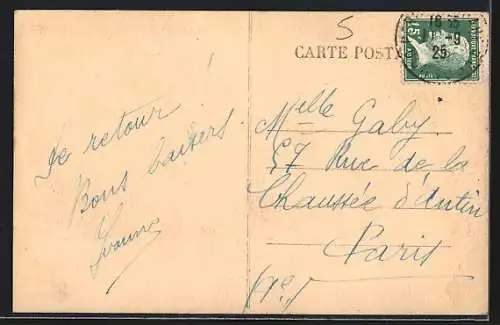 5
CARTE POST
15c
18 15
-9
25
De retour
Bons baisers.
Yvonne
Melle Gaby
57 Rue de la
Chaussée d'Antin
Paris
(9e)